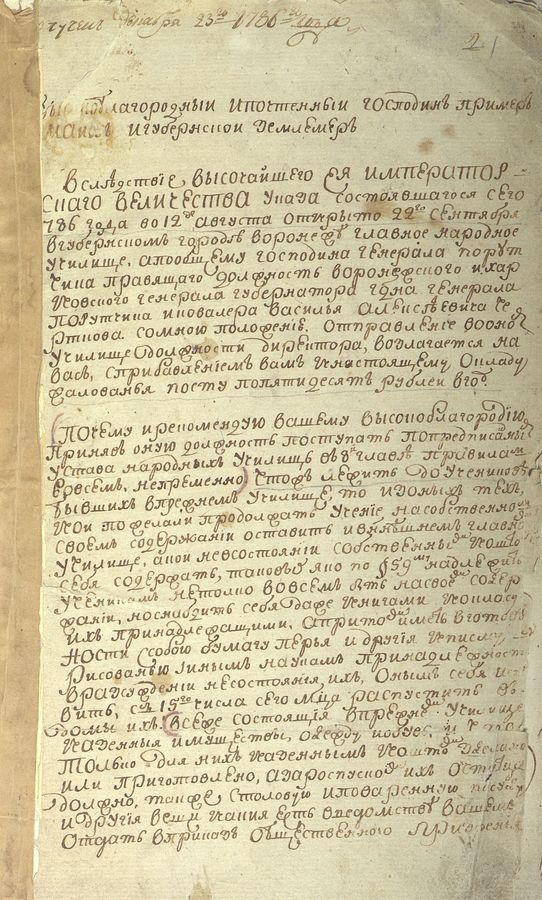 Декабря 23го 1786го года
21
благородныи ипочтенныи господинъ примеръ
маиоръ игубернскои землемеръ
Вслѣдствiе высочайшего ея император-
скаго величества указа состоявшагося сего
786 года во 12де августа открыто 22го сентября
вгубернскомъ городѣ воронежѣ главное народное
училище, апообщему господина генерала порут
чика правящаго должность воронежского ихар
ковского генерала губернатора гдна генерала
порутчика икавалера Василья Алексѣевича Че
рткова сомною положенiю. отправленiе воономъ
училище должности директора, возлагается на
васъ, сприбавленiемъ вамъ кнастоящему окладу
жалованья посту попятидесятъ рублеи вго
Почему ирекомендую вашему высокоблагородiю
принявъ оную должность поступать попредписанным
устава народныхъ училищь въ главѣ правилам
вовсемъ непременно стожъ лежитъ до учениковъ
бывшихъ впрежнемъ училище, то изоныхъ техъ,
кои пожелали продолжать ученiе насобственномъ
своемъ содержанiи оставить внынѣшнемъ главно
училище, акои невсостоянiи собственны кошто
себя содержать, таковые яко по §59му надлежитъ
ученикамъ нетолко вовсемъ быть насвое содер
жанiи, носнабдить себя даже книгами
ихъ принадлежащими, апритом иметь вготов
ности собою бумагу перья идругiя кписму
рисованью инымъ наукамъ принадлежности
вразсужденiи несостоянiя ихъ, онымъ себя
вить, съ 15го числа сего мца распустить въ
домы ихъ. Всеже состоящiя впрежне училище
казенныя имуществы, одежду
только для нихъ казеннымъ коштом зделано
или приготовлено, азароспуско ихъ остатся
должно, также столовую иповаренную посуду
идругiя вещи какия есть введомствѣ вашемъ
отдать вприказъ общественнаго призрѣнiя